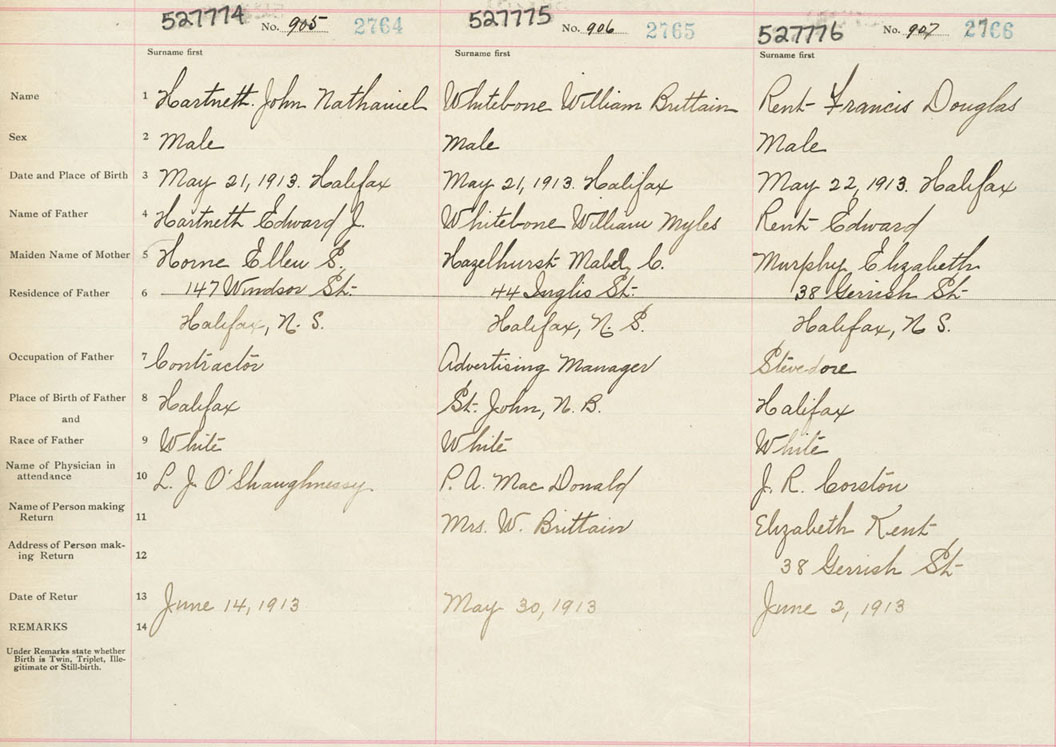 527774 No. 905 2764 527775 No. 906 2765 527776 No. 907 2766
Surname first Surname first Surname first
Name 1 Hartnett John Nathaniel Whitebone William Brittain Rent Francis Douglas
Sex 2 Male Male Male
Date and Place of Birth 3 May 21, 1913. Halifax May 21, 1913. Halifax May 22, 1913. Halifax
Name of Father 4 Hartnett Edward J. Whitebone William Myles Rent Edward
Maiden Name of Mother 5 Horne Ellen S. Hazelhurst Mabel C. Murphy Elizabeth
Residence of Father 6 147 Windsor St. 44 Inglis St. 38 Gerrish St.
Halifax, N. S. Halifax, N. S. Halifax, N S.
Occupation of Father 7 Contractor Advertising Manager Stevedore
Place of Birth of Father 8 Halifax St. John, N. B. Halifax
and
Race of Father 9 White White White
Name of Physician in
attendance 10 L. J. O'Shaughnessy P. A. Mac Donald J. R. Corston
Name of Person making
Return 11 Mrs. W. Brittain Elizabeth Kent
Address of Person mak-
ing Return 12 38 Gerrish St.
Date of Retur 13 June 14, 1913 May 30, 1913 June 2, 1913
REMARKS 14
Under Remarks state whether
Birth is Twin, Triplet, Ille-
gitimate or Still-birth.